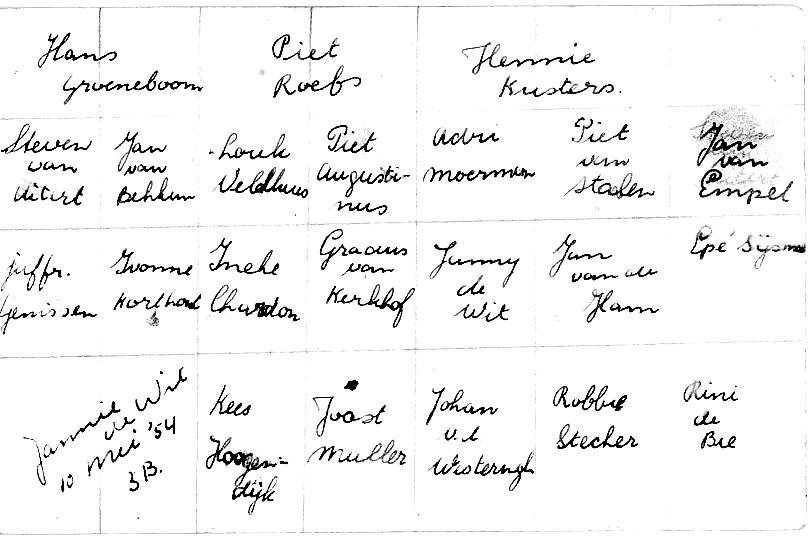 Hans Piet Hennie
Groeneboom Roebs Kusters.
Steven Jan Louk Piet Adri Piet Jan
van van Veldhuis Augusti- Moerman van van
Bekkum nus Stralen Empel
juffr. Yvonne Ineke Gracus Jan Epé
Korthout Chardon van de van de
Kerkhof Wit Ham
Kees Joost Johan Robbie Rini
Hoogen- Muller v.d. Stecher de
dijk Bie
Jannie
de Wit
10 Mei '54
3B.